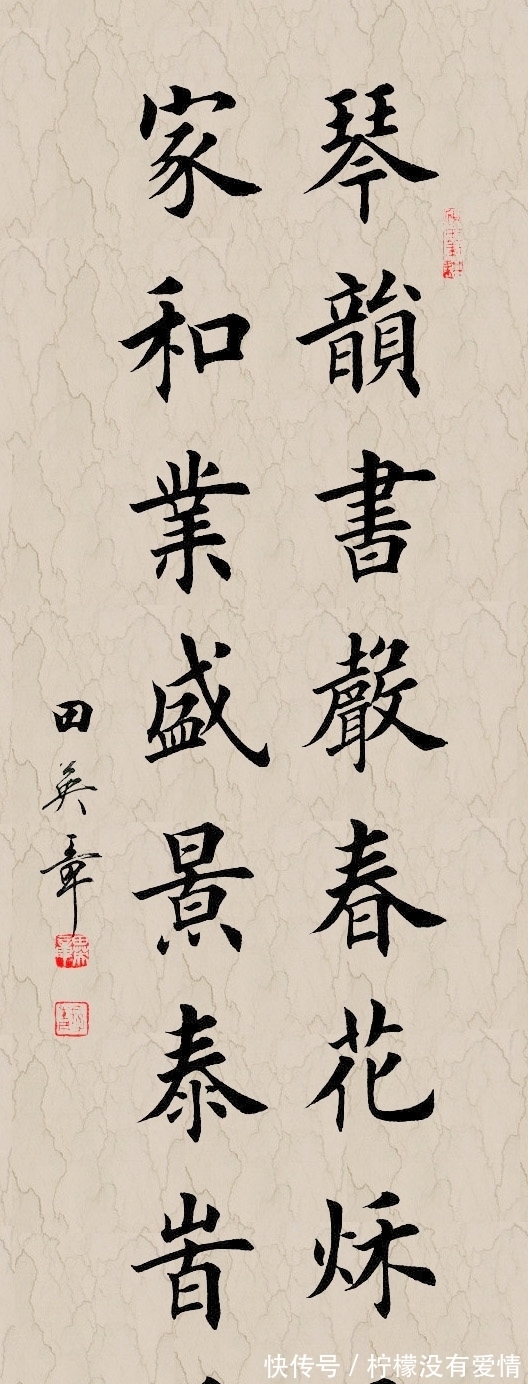 琴韻書聲春花秌
家和業盛景泰旹
田英章
快传号 / 柠檬没有爱情